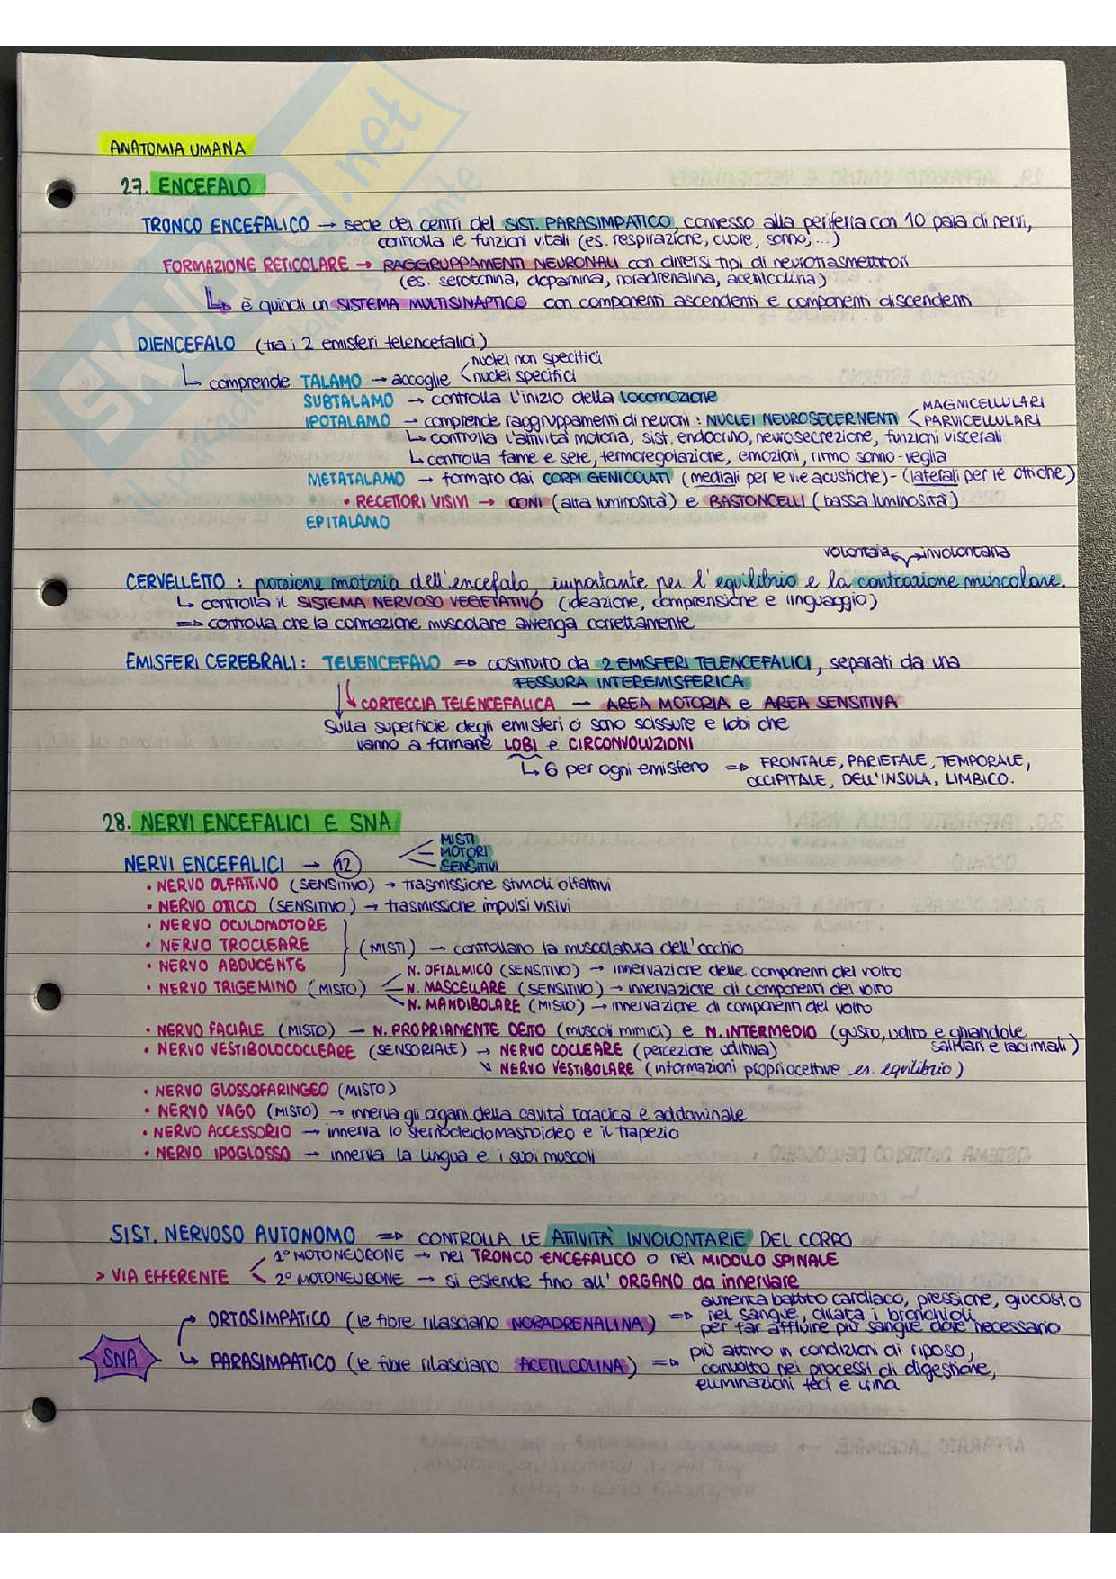 ANATOMIA UMANA
27. ENCEFALO
TRONCO ENCEFALICO → sede dei centri del SIST. PARASIMPATICO, connesso alla periferia con 10 paia di nervi,
controlla le funzioni vitali (es. respirazione, cuore, sonno, ...)
FORMAZIONE RETICOLARE → RAGGRUPPAMENTI NEURONALI con diversi tipi di neurotrasmettitori
(es. serotonina, dopamina, noradrenalina, acetilcolina)
↳ è quindi un SISTEMA MULTISINAPTICO con componenti ascendenti e componenti discendenti
DIENCEFALO (tra i 2 emisferi telencefalici)
nuclei non specifici
↳ comprende TALAMO → accoglie < nuclei specifici
SUBTALAMO → controlla l'inizio della locomozione
MAGNICELLULARI
IPOTALAMO → comprende raggruppamenti di neuroni: NUCLEI NEUROSECERNENTI < PARVICELLULARI
↳ controlla l'attività motoria, sist. endocrino, neurosecrezione, funzioni viscerali
↳ controlla fame e sete, termoregolazione, emozioni, ritmo sonno-veglia
METATALAMO → formato dai CORPI GENICOLATI (mediali per le vie acustiche) - (laterali per le ottiche)
• RECETTORI VISIVI → CONI (alta luminosità) e BASTONCELLI (bassa luminosità)
EPITALAMO
volontaria involontaria
CERVELLETTO: porzione motoria dell'encefalo importante per l'equilibrio e la contrazione muscolare.
↳ controlla il SISTEMA NERVOSO VEGETATIVO (ideazione, comprensione e linguaggio)
⇒ controlla che la contrazione muscolare avvenga correttamente
EMISFERI CEREBRALI: TELENCEFALO ⇒ costituito da 2 EMISFERI TELENCEFALICI, separati da una
FESSURA INTEREMISFERICA
↳ CORTECCIA TELENCEFALICA — AREA MOTORIA e AREA SENSITIVA
Sulla superficie degli emisferi ci sono scissure e lobi che
vanno a formare LOBI e CIRCONVOLUZIONI
↳ 6 per ogni emisfero ⇒ FRONTALE, PARIETALE, TEMPORALE,
OCCIPITALE, DELL'INSULA, LIMBICO.
28. NERVI ENCEFALICI E SNA
MISTI
MOTORI
NERVI ENCEFALICI → 12 SENSITIVI
• NERVO OLFATTIVO (SENSITIVO) → trasmissione stimoli olfattivi
• NERVO OTICO (SENSITIVO) → trasmissione impulsi visivi
• NERVO OCULOMOTORE
• NERVO TROCLEARE (MISTI) → controllano la muscolatura dell'occhio
• NERVO ABDUCENTE
N. OFTALMICO (SENSITIVO) → innervazione delle componenti del volto
• NERVO TRIGEMINO (MISTO) N. MASCELLARE (SENSITIVO) → innervazione di componenti del volto
N. MANDIBOLARE (MISTO) → innervazione di componenti del volto
• NERVO FACIALE (MISTO) — N. PROPRIAMENTE DETTO (muscoli mimici) e N. INTERMEDIO (gusto, udito e ghiandole
salivari e lacrimali)
• NERVO VESTIBOLOCOCLEARE (SENSORIALE) → NERVO COCLEARE (percezione uditiva)
↘ NERVO VESTIBOLARE (informazioni propriocettive es. equilibrio)
• NERVO GLOSSOFARINGEO (MISTO)
• NERVO VAGO (MISTO) → innerva gli organi della cavità toracica e addominale
• NERVO ACCESSORIO → innerva lo sternocleidomastoideo e il trapezio
• NERVO IPOGLOSSO → innerva la lingua e i suoi muscoli
SIST. NERVOSO AUTONOMO ⇒ CONTROLLA LE ATTIVITÀ INVOLONTARIE DEL CORPO
1° MOTONEURONE → nel TRONCO ENCEFALICO o nel MIDOLLO SPINALE
> VIA EFFERENTE < 2° MOTONEURONE → si estende fino all'ORGANO da innervare
aumenta battito cardiaco, pressione, glucosio
ORTOSIMPATICO (le fibre rilasciano NORADRENALINA) ⇒ nel sangue, dilata i bronchioli
per far affluire più sangue dove necessario
SNA
più attivo in condizioni di riposo,
↳ PARASIMPATICO (le fibre rilasciano ACETILCOLINA) ⇒ coinvolto nei processi di digestione,
eliminazioni feci e urina